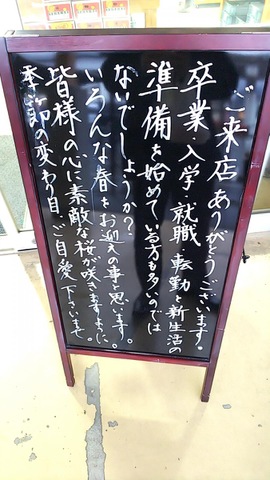 ご来店ありがとうございます。
卒業 入学 就職 転勤と新生活の
準備を始めている方も多いのでは
ないでしょうか？
いろんな春をお迎えの事と思います。
皆様の心に素敵な桜が咲きますように。
季節の変わり目、ご自愛下さいませ。